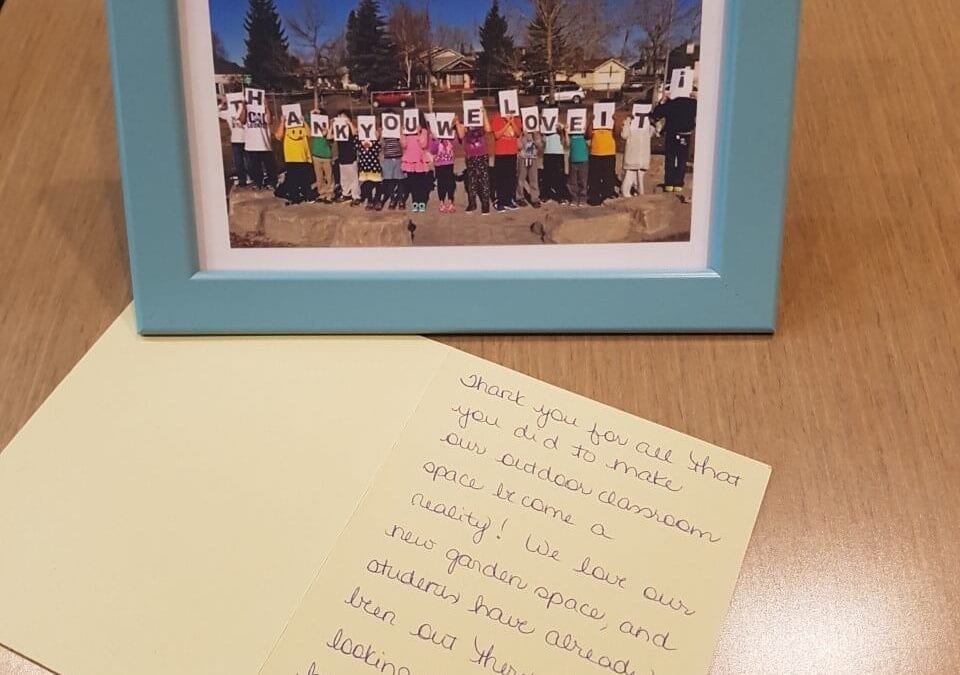 THANK YOU WE LOVE IT !
Thank you for all that
you did to make
our outdoor classroom
space become a
reality! We love our
new garden space, and
students have already
been out
looking